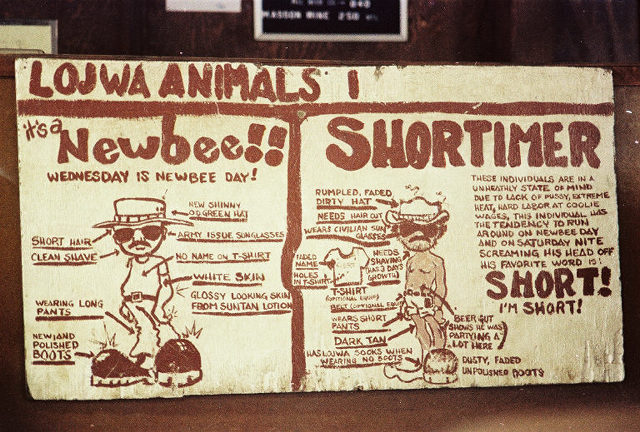 LOJWA ANIMALS 1
it's a
Newbee!!
WEDNESDAY IS NEWBEE DAY!
NEW SHINNY
O.D GREEN HAT
ARMY ISSUE SUNGLASSES
SHORT HAIR
CLEAN SHAVE
NO NAME ON T-SHIRT
WHITE SKIN
GLOSSY LOOKING SKIN
FROM SUNTAN LOTION
WEARING LONG
PANTS
NEW AND
POLISHED
BOOTS
SHORTIMER
RUMPLED, FADED
DIRTY HAT
NEEDS HAIR CUT
WEARS CIVILIAN SUN
GLASSES
FADED
NAME
HOLES
IN T-SHIRT
NEEDS
SHAVING
(HAS 3 DAYS
GROWTH)
T-SHIRT
(OPTIONAL EQUIP)
BELT (OPTIONAL
WEARS SHORT
PANTS
DARK TAN
HAS LOJWA SOCKS WHEN
WEARING NO BOOTS
BEER GUT
SHOWS HE WAS
PARTYING A
LOT HERE
DUSTY, FADED
UNPOLISHED BOOTS
THESE INDIVIDUALS ARE IN A
UNHEATHLY STATE OF MIND
DUE TO LACK OF PUSSY, EXTREME
HEAT, HARD LABOR AT COOLIE
WAGES, THIS INDIVIDUAL HAS
THE TENDENCY TO RUN
AROUND ON NEWBEE DAY
AND ON SATURDAY NITE
SCREAMING HIS HEAD OFF
HIS FAVORITE WORD IS!
SHORT!
I'M SHORT!
MASSON WINE 250